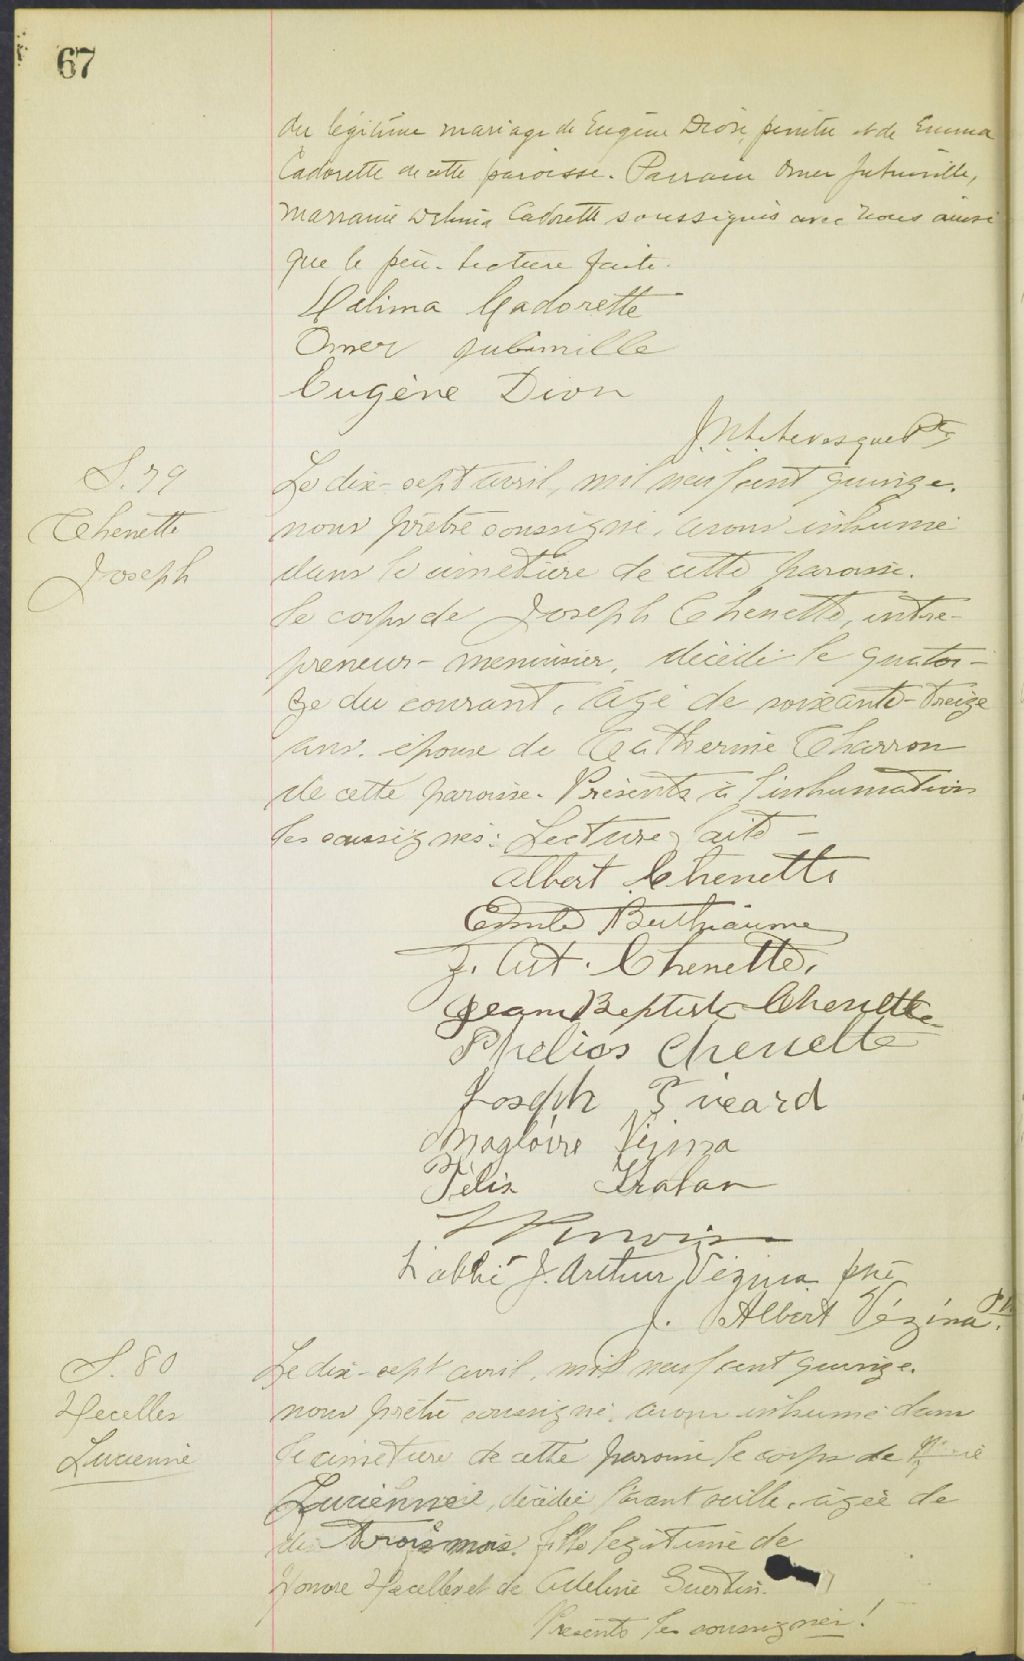 67
du légitime mariage de Eugène Dion, peintre et de Emma
Cadorette de cette paroisse. Parrain Omer Jubinville,
marraine Délima Cadorette soussignés avec nous ainsi
que le père. Lecture faite.
Délima Cadorette
Omer Jubinville
Eugène Dion
Levesque Ptre
S. 79
Chenette
Joseph
Le dix-sept avril, mil neuf cent quinze.
nous prêtre soussigné, avons inhumé
dans le cimetière de cette paroisse.
le corps de Joseph Chenette, entre-
preneur-menuisier, décédé le quator-
ze du courant, âgé de soixante-treize
ans. époux de Catherine Charron
de cette paroisse. Présents à l'inhumation
les soussignés: Lecture faite –
Albert Chenette
Berthiaume
J. Art. Chenette,
Jean Baptiste Chenette
Phelios Chenette
Joseph Sicard
Magloire Vézina
Félix
L'abbé J. Arthur Vézina ptre
J. Albert Vézina Ptr.
S. 80
Hecelles
Lucienne
Le dix-sept avril, mil neuf cent quinze.
nous prêtre soussigné, avons inhumé dans
le cimetière de cette paroisse le corps de
Lucienne, décédée l'avant veille, âgée de
trois mois. fille légitime de
Honoré Hecelles et de Adeline Guertin.
Présents les soussignés!